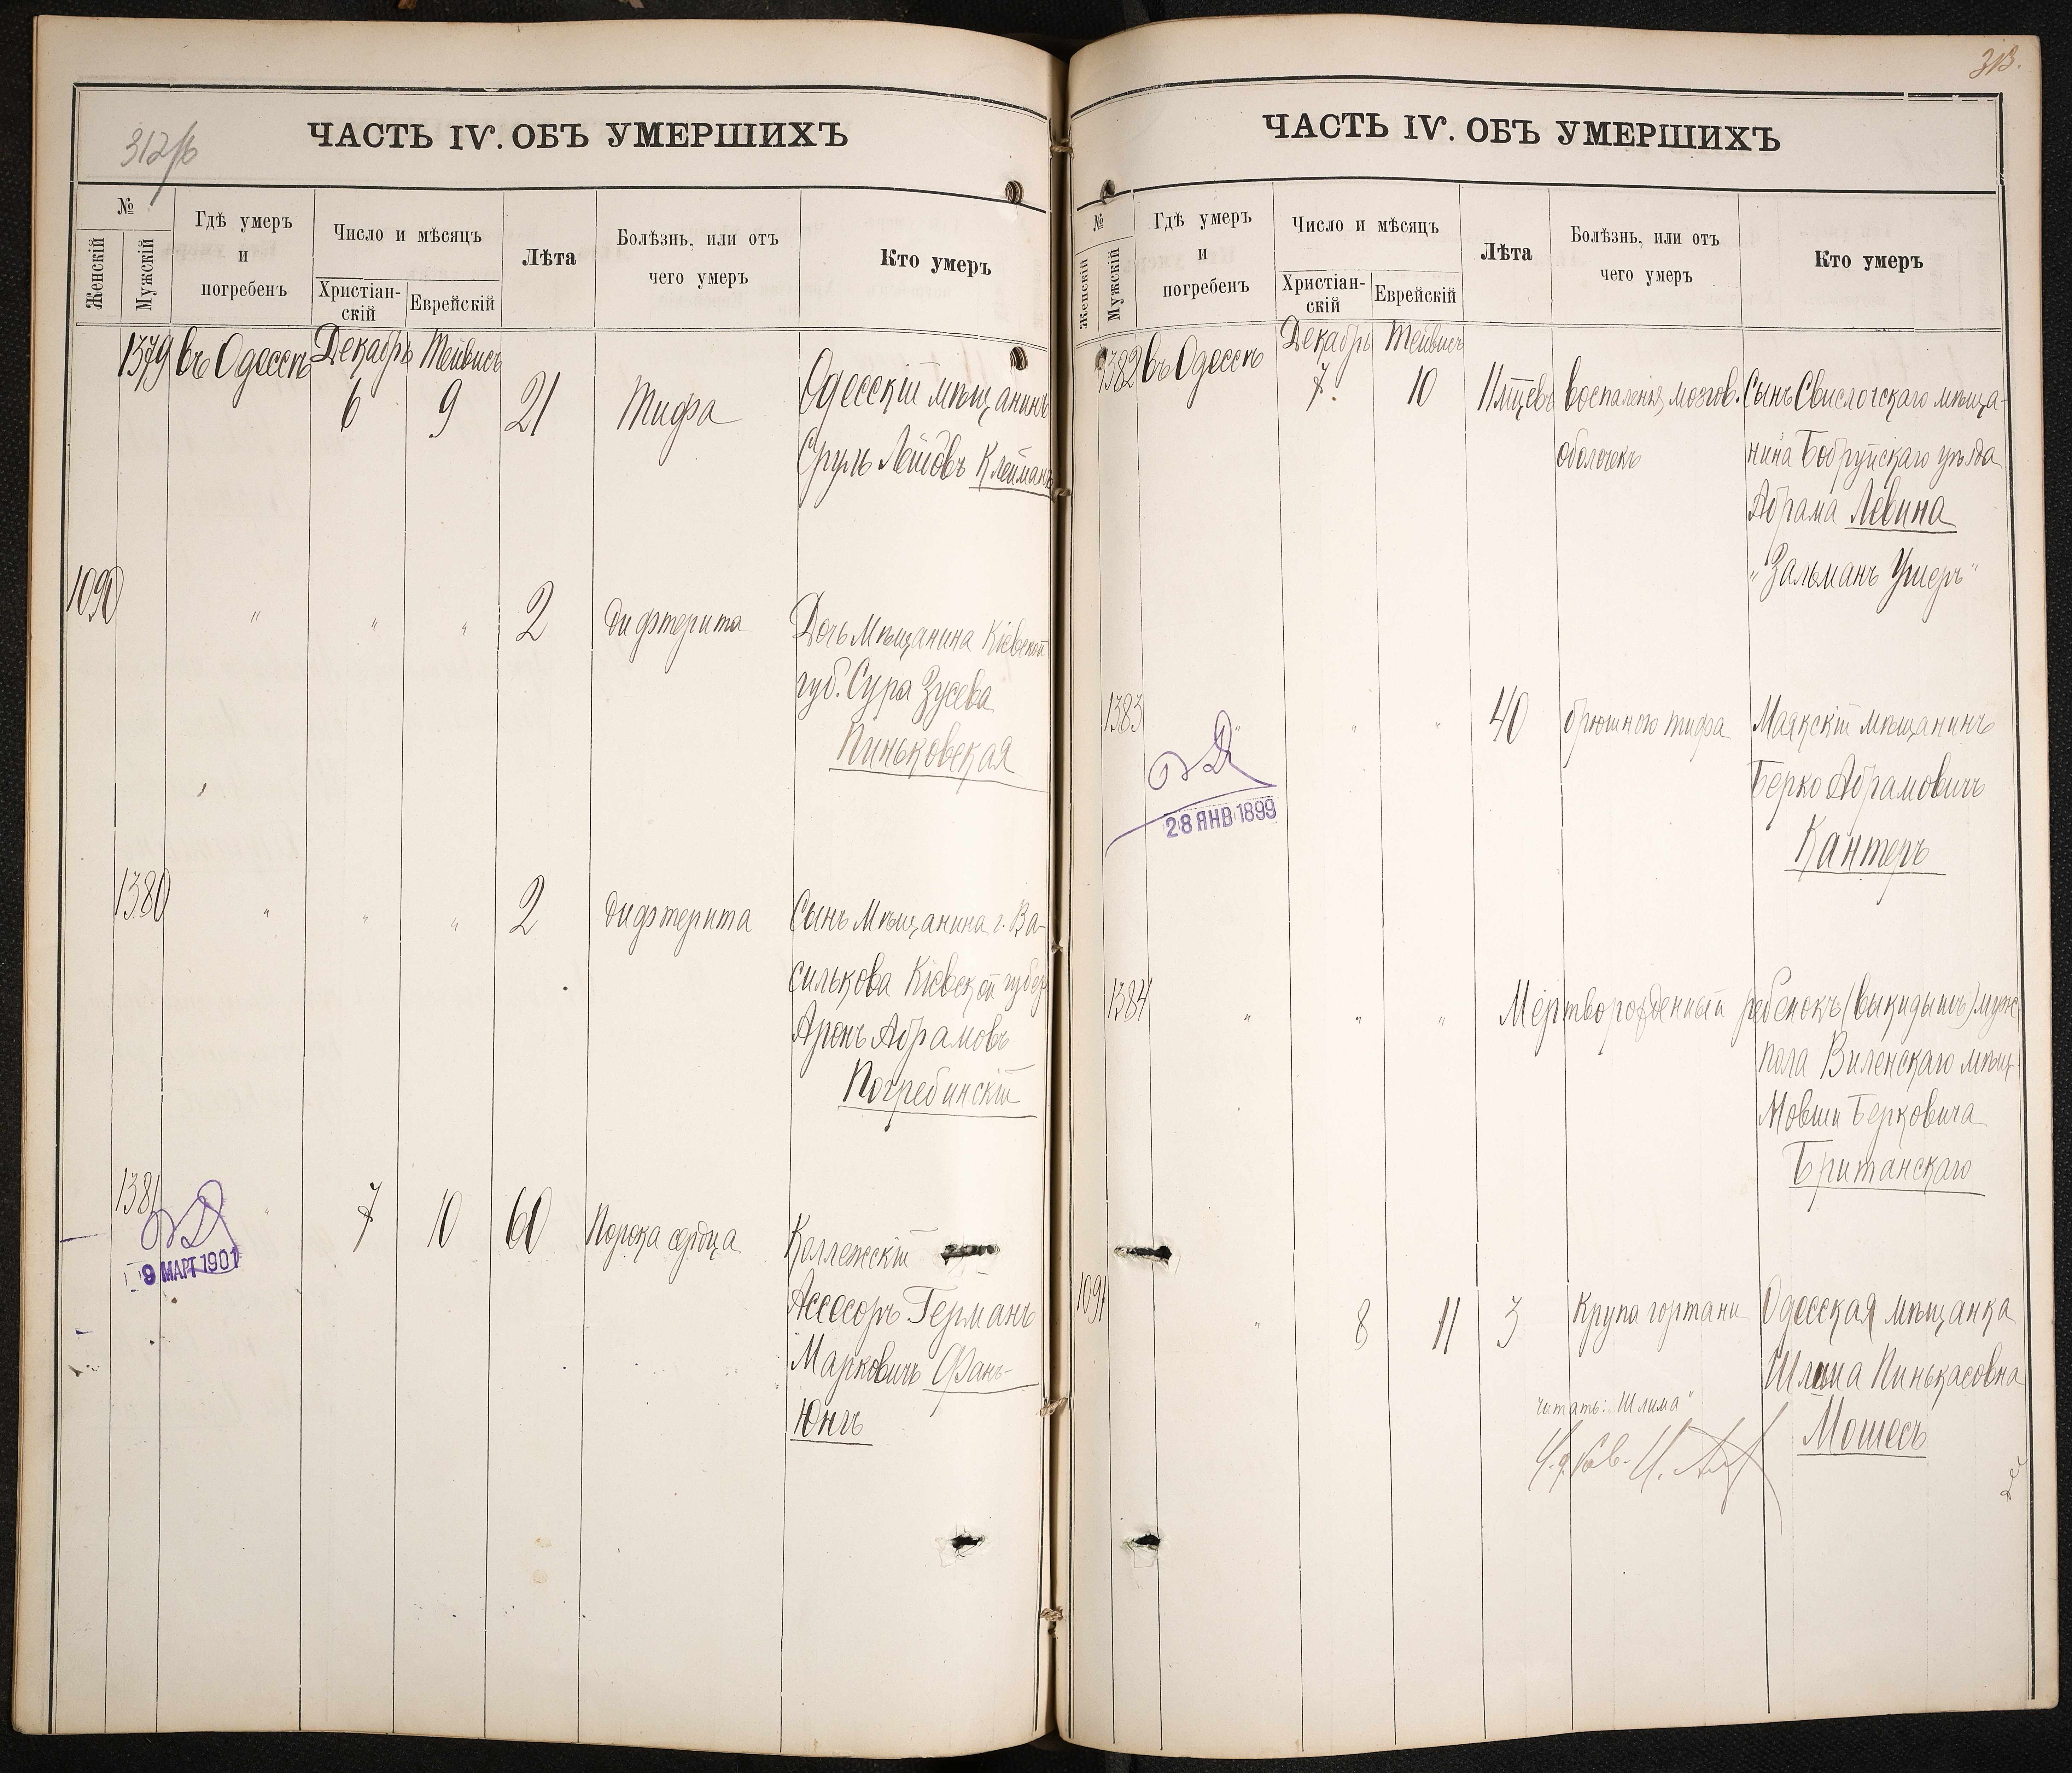 312/б
ЧАСТЬ IV. ОБЪ УМЕРШИХЪ
№
Женскій
Мужскій
Гдѣ умеръ
и
погребенъ
Число и мѣсяцъ
Христіан-
скій
Еврейскій
Лѣта
Болѣзнь, или отъ
чего умеръ
Кто умеръ
1379 въ Одессѣ Декабрь Тейвисъ
6 9 21 Тифа Одесскій мѣщанинъ
Сруль Лейбовъ Клейманъ
1090 " " " 2 дифтерита Дочь Мѣщанина Кіевской
губ. Сура Зусева
Пиньковская
1380 " " " 2 дифтерита Сынъ Мѣщанина г. Ва-
силькова Кіевской губер
Аронъ Абрамовъ
Погребинскій
1381 " 7 10 60 Порока сердца Коллежскій
9 МАРТ 1901
Асессоръ Германъ
Марковичъ Фанъ-
Юнгъ
313.
ЧАСТЬ IV. ОБЪ УМЕРШИХЪ
№
Женскій
Мужскій
Гдѣ умеръ
и
погребенъ
Число и мѣсяцъ
Христіан-
скій
Еврейскій
Лѣта
Болѣзнь, или отъ
чего умеръ
Кто умеръ
1382 въ Одессѣ Декабрь Тейвисъ
7. 10 11 мцевъ воспаленія мозгов. Сынъ Свислочскаго мѣща-
оболочекъ нина Бобруйскаго уѣзда
Абрама Левина
"Зальманъ Ушеръ"
1383 " " " 40 брюшного тифа Маякскій мѣщанинъ
Берко Абрамовичъ
28 ЯНВ 1899
Кантеръ
1384 " " " Мертворожденный ребенокъ (выкидышъ) мужс.
пола Виленскаго мѣщ.
Мовши Берковича
Британскаго
1091 " 8 11 3 Крупа гортани Одесская мѣщанка
Шлима Пинькасовна
читать: Шлима"
Мошесъ